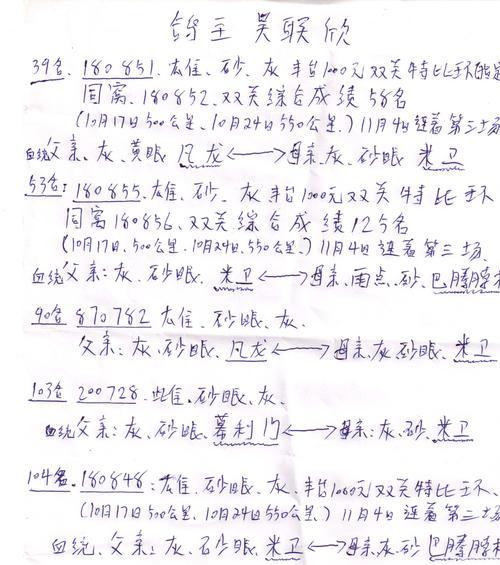 鸽主 吴联欣
39名、180851、太隹、砂、灰 丰台1000元双关特比环
同窝、180852、双关综合成绩58名
(10月17日500公里、10月24日550公里、)11月4日连着第三场
血统父亲、灰、黄眼 凡龙←→母亲、灰、砂眼 米卫
53名:180855、太隹、砂、灰丰台1000元双关特比环
同窝180856、双关综合成绩125名
(10月17日、500公里、10月24日、550公里、)11月4日连着第三场、
血统 父亲:灰、砂眼、米卫←→母亲、雨点、砂、巴腾腾
90名 870782 太隹、砂眼、灰、
父亲:灰、砂眼、凡龙←→母亲、灰、砂眼、米卫
103名 200728、此隹、砂眼、灰、
血统父亲:灰、砂眼、幕利门←→母亲:灰、砂、米卫
104名、180848:太隹、砂眼、灰、丰台1000元双关特比环、
(10月17日500公里、10月24日550公里、)11月4日 连着第三场
血统、父亲:灰、砂眼、米卫←→母亲、灰、砂 巴腾腾